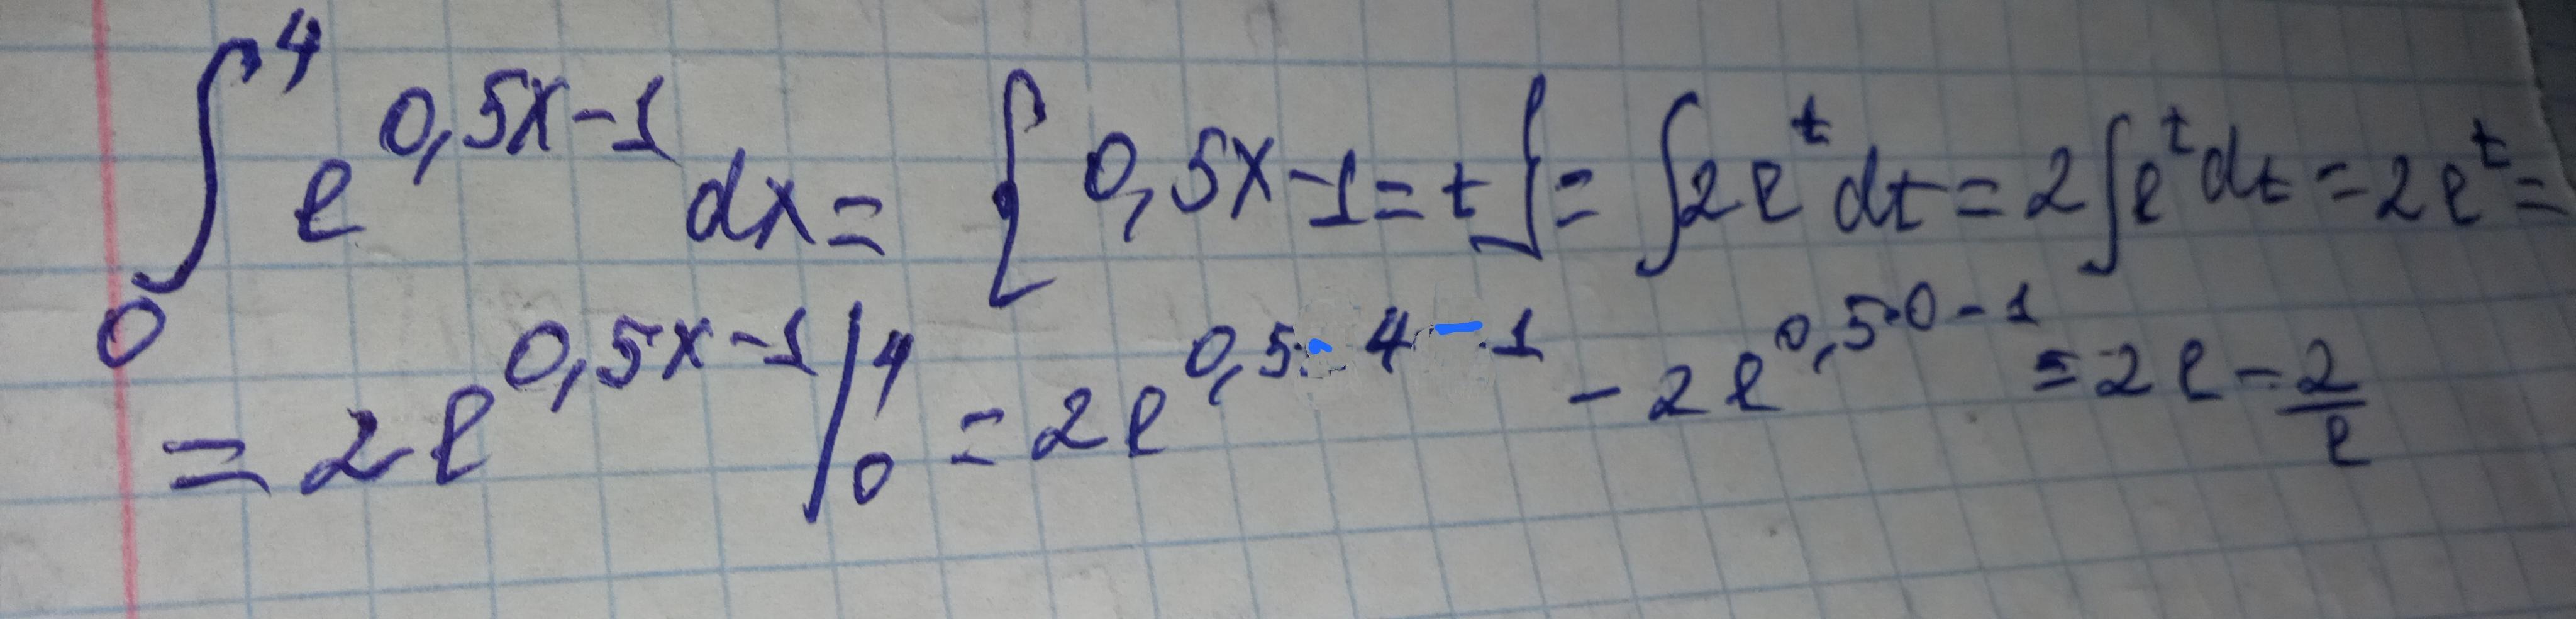 ∫₀⁴ e^{0,5x-1} dx = {0,5x-1=t} = ∫2e^t dt = 2∫e^t dt = 2e^t =
= 2e^{0,5x-1} |₀⁴ = 2e^{0,5·4-1} - 2e^{0,5·0-1} = 2e - 2/e